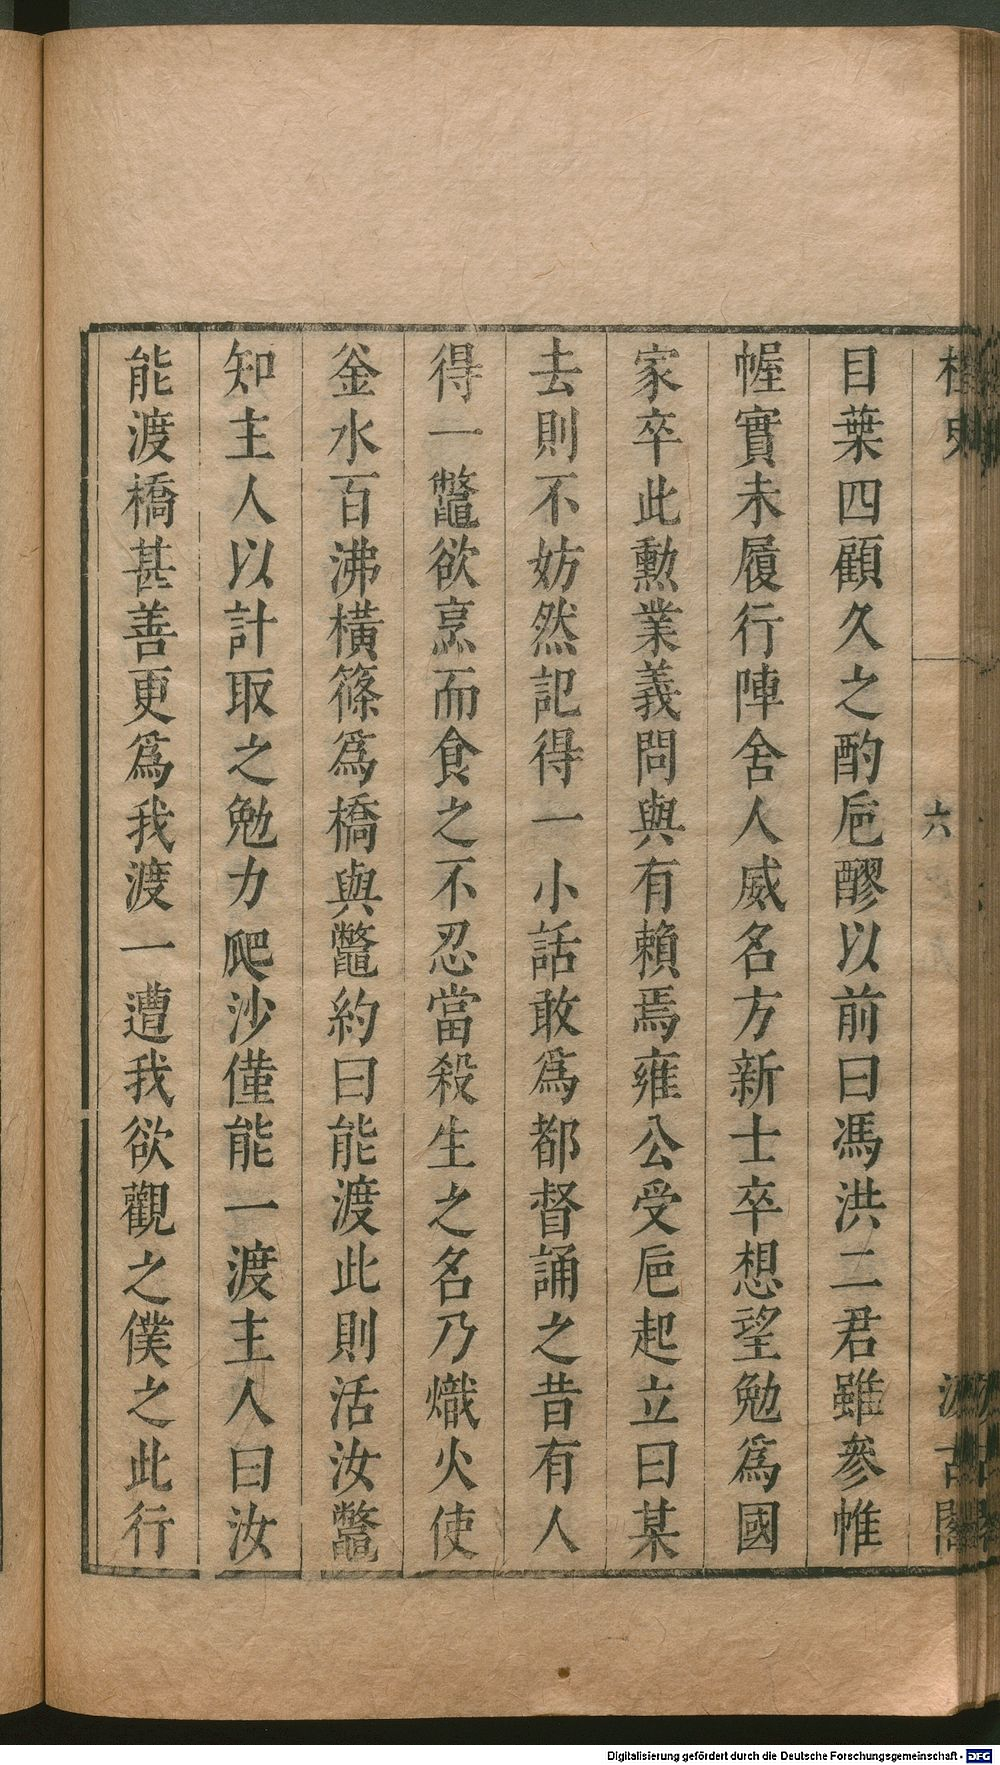 桯史
六
汲古閣
目葉四顧久之酌巵醪以前曰馮洪二君雖參帷
幄實未履行陣舍人威名方新士卒想望勉爲國
家卒此勲業義問與有賴焉雍公受巵起立曰某
去則不妨然記得一小話敢爲都督誦之昔有人
得一鼈欲烹而食之不忍當殺生之名乃熾火使
釜水百沸横篠爲橋與鼈約曰能渡此則活汝鼈
知主人以計取之勉力爬沙僅能一渡主人曰汝
能渡橋甚善更爲我渡一遭我欲觀之僕之此行
Digitalisierung gefördert durch die Deutsche Forschungsgemeinschaft - DFG